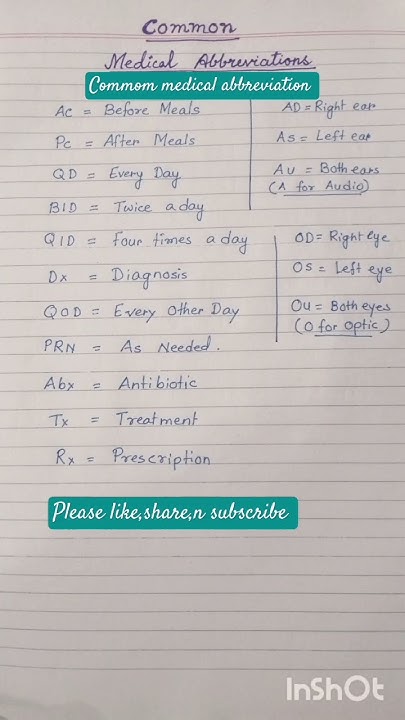 Common
Medical Abbreviations
Commom medical abbreviation
Ac = Before Meals
Pc = After Meals
QD = Every Day
BID = Twice a day
QID = Four times a day
Dx = Diagnosis
QOD = Every Other Day
PRN = As Needed.
Abx = Antibiotic
Tx = Treatment
Rx = Prescription
AD = Right ear
As = Left ear
Au = Both ears
(A for Audio)
OD = Right eye
Os = Left eye
Ou = Both eyes
(O for Optic)
Please like,share,n subscribe
InShOt